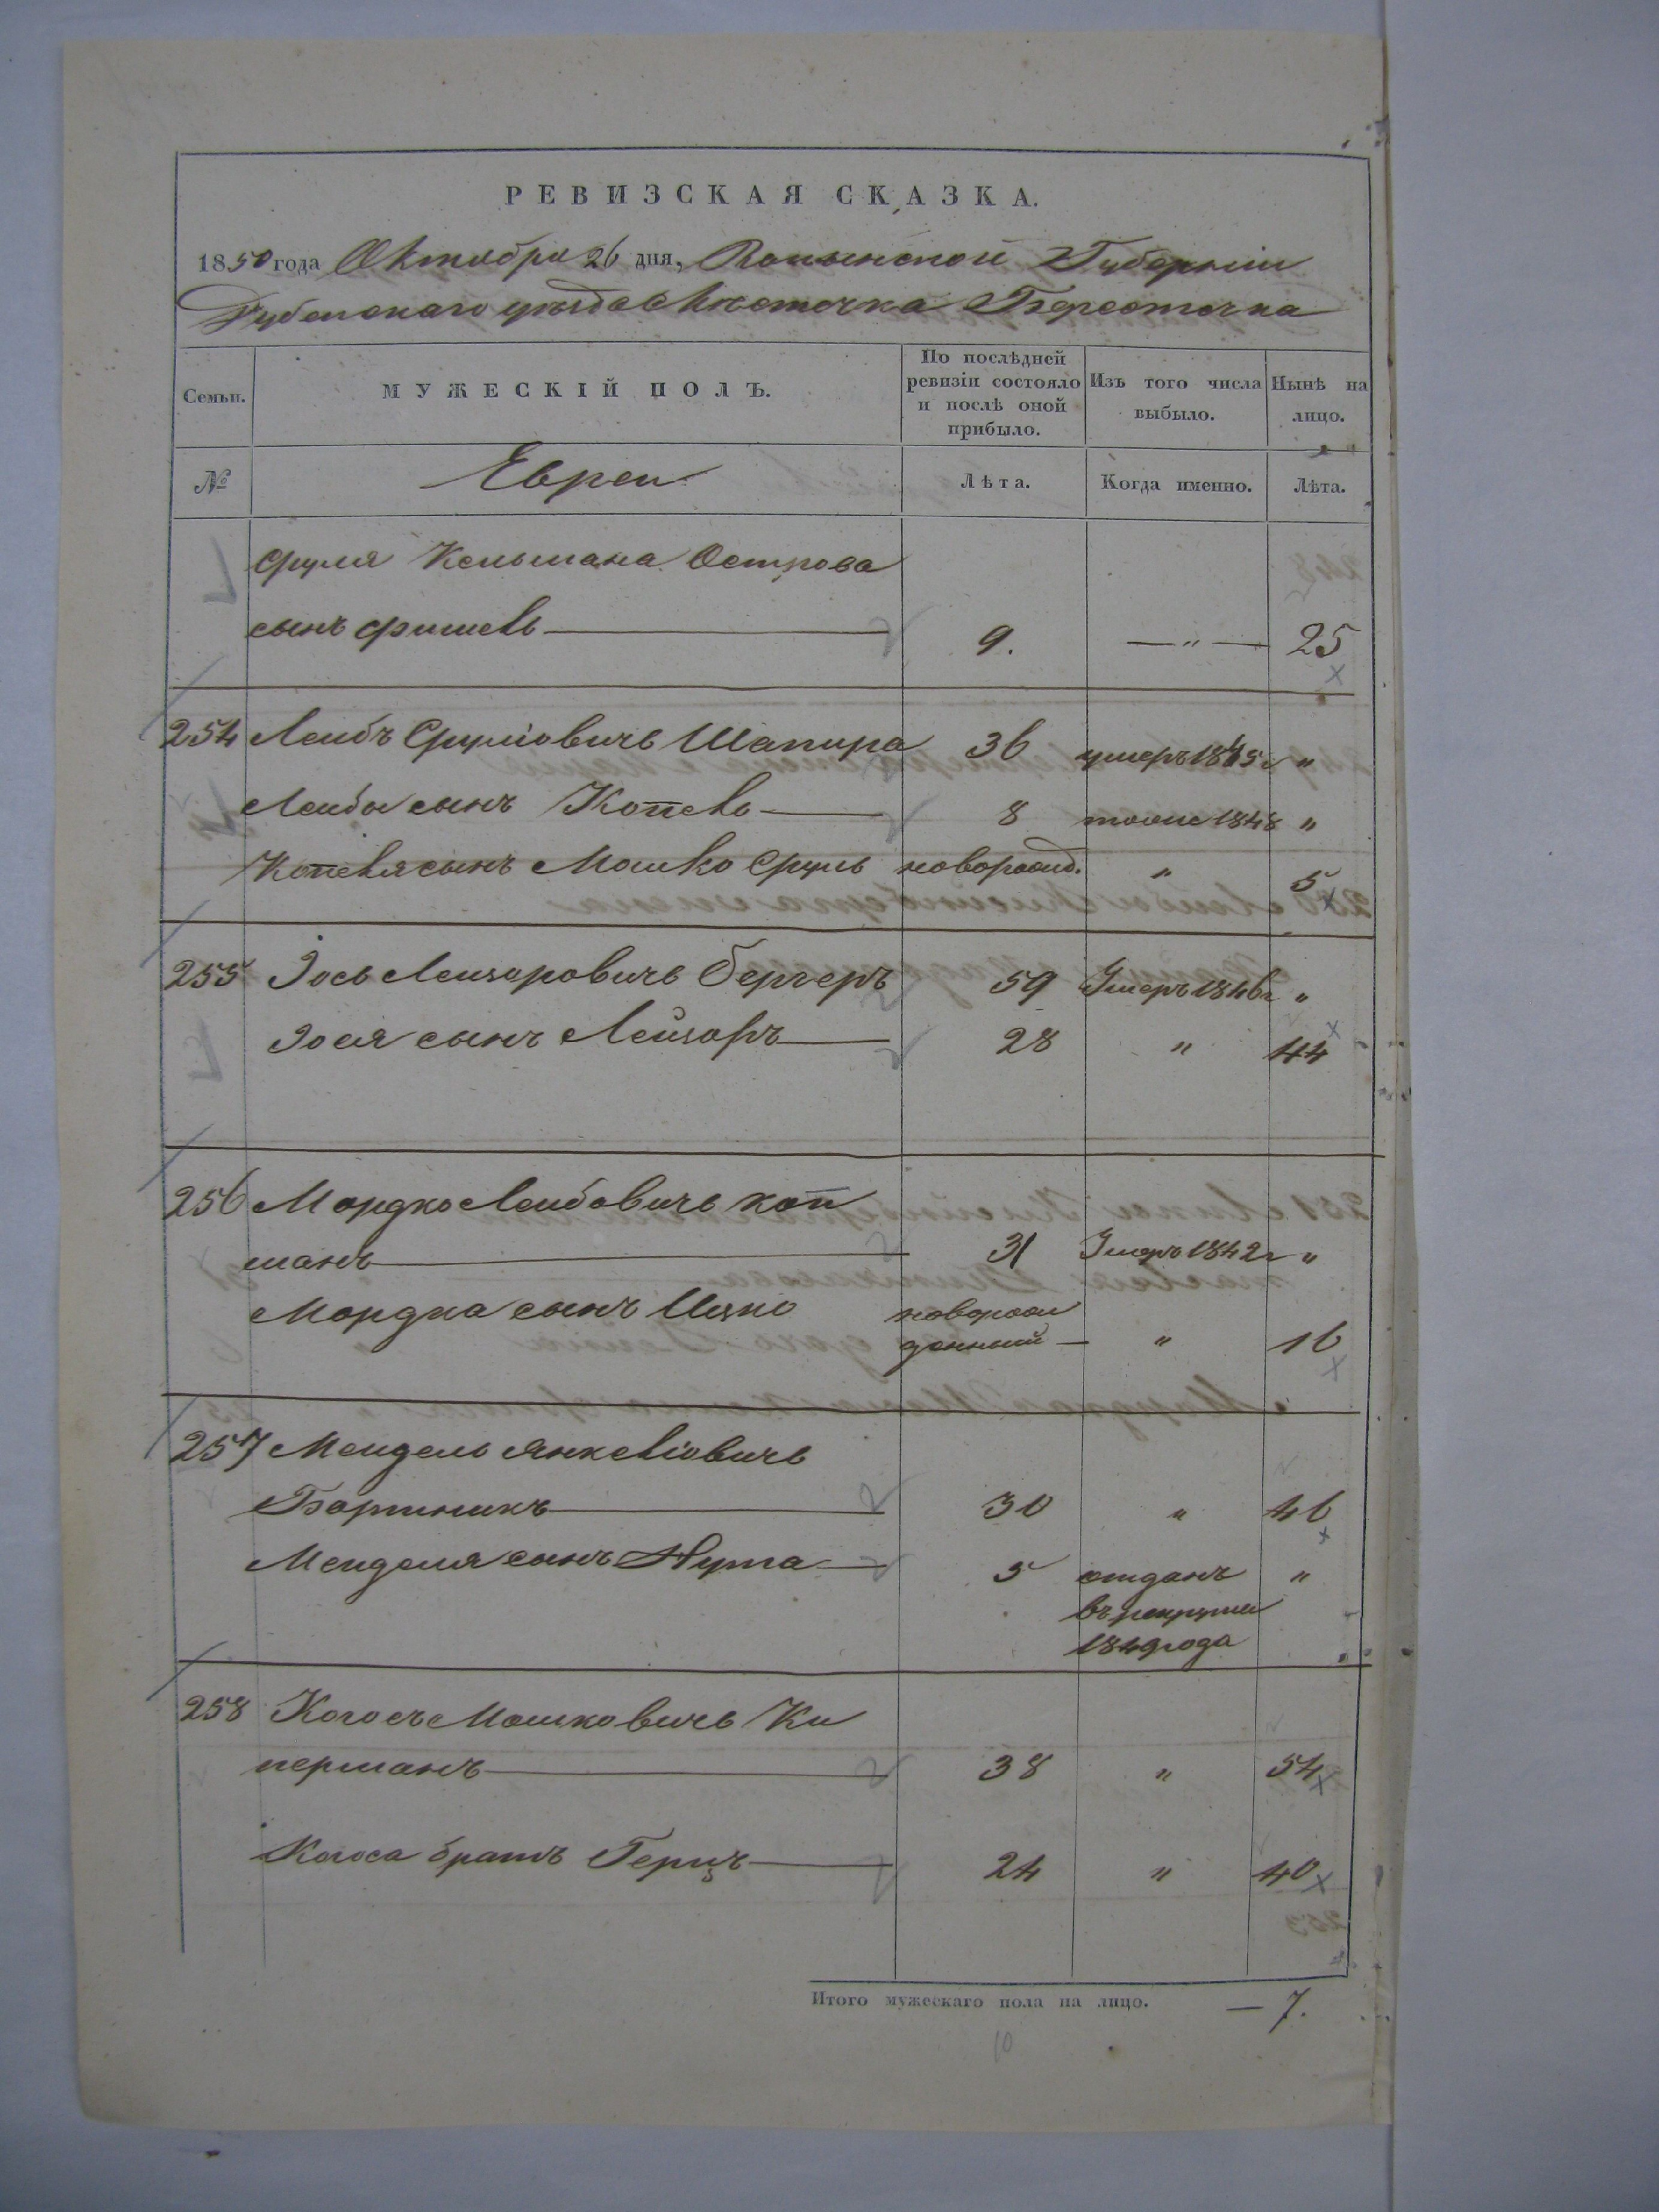 РЕВИЗСКАЯ СКАЗКА.
1850 года Октября 26 дня, Волынской Губерніи
Дубенскаго уѣзда Мѣстечка Берестечка
Семьи.
МУЖЕСКІЙ ПОЛЪ.
По послѣдней ревизіи состояло и послѣ оной прибыло.
Изъ того числа выбыло.
Нынѣ на лицо.
№
Евреи
Лѣта.
Когда именно.
Лѣта.
Сруля Кельмана Острова
сынъ Фишель 9. — " — 25
254 Лейбъ Сруліовичъ Шапира 36 умеръ 1845 г "
Лейбы сынъ Коппель 8 тоже 1848 "
Коппеля сынъ Мошко Сруль новорожд. " 5
255 Іось Лейзоровичъ Бергеръ 59 Умеръ 1846 г "
Іося сынъ Лейзоръ 28 " 44
256 Мордко Лейбовичъ Коп
манъ 31 Умеръ 1842 г "
Мордка сынъ Ицко новорож
денный — " 16
257 Мендель Янкеліовичъ
Бортникъ 30 " 46
Менделя сынъ Нута 5 отданъ "
въ рекруты
1849 года
258 Когосъ Мошковичъ Ки
перманъ 38 " 54
Когоса братъ Герцъ 24 " 40
Итого мужескаго пола на лицо. — 7.
10